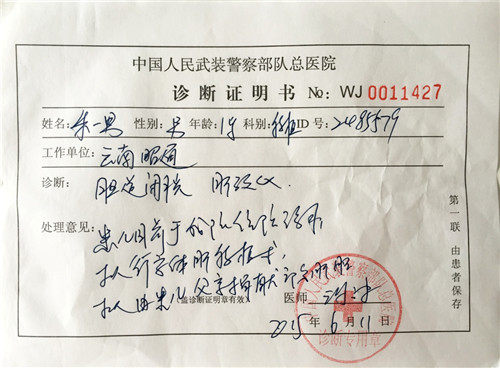 中国人民武装警察部队总医院
诊断证明书 No: WJ 0011427
姓名: 朱一男 性别: 男 年龄: 1岁 科别: 移植 ID号: 2485579
工作单位: 云南昭通
诊断: 胆道闭锁 肝硬化
处理意见: 患儿目前于我院住院治疗
拟行亲体肝移植术,
拟由患儿父亲捐献部分肝脏
(盖诊断证明章有效) 医师
2015年6月11日
第一联 由患者保存
诊断专用章